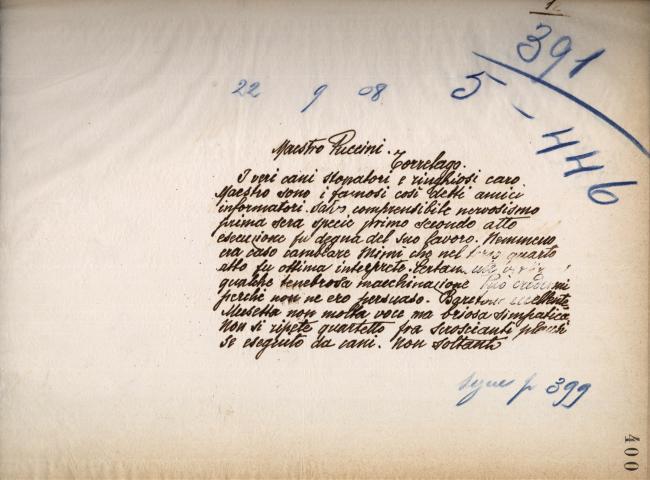 1
391
5-446
22 9 08
Maestro Puccini.
Torrelago.
I veri cani stonatori e ringhiosi caro
Maestro sono i famosi così detti amici
informatori. Salvo comprensibile nervosismo
prima sera specie primo secondo atto
esecuzione fu degna del suo lavoro. Nemmeno
era caso cambiare Mimì che nel terzo quarto
atto fu ottima interprete. Certam
qualche tenebrosa macchinazione Può credermi
perchè non ne ero persuaso. Baritono eccellente
Musetta non molta voce ma briosa simpatica.
Non si ripete quartetto fra scroscianti plausi
se eseguito da cani. Non soltanto
segue p 399
400